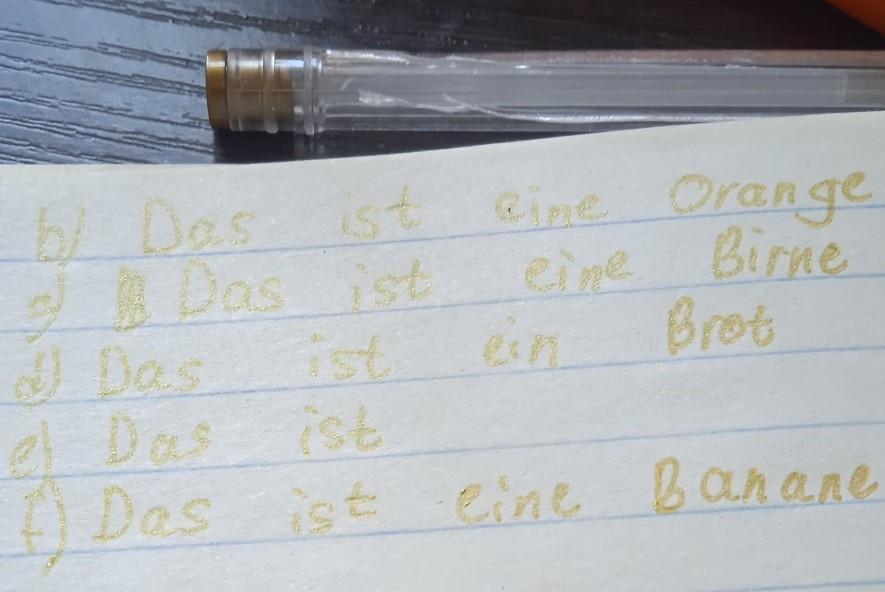 b) Das ist eine Orange
c) Das ist eine Birne
d) Das ist ein Brot
e) Das ist
f) Das ist eine Banane